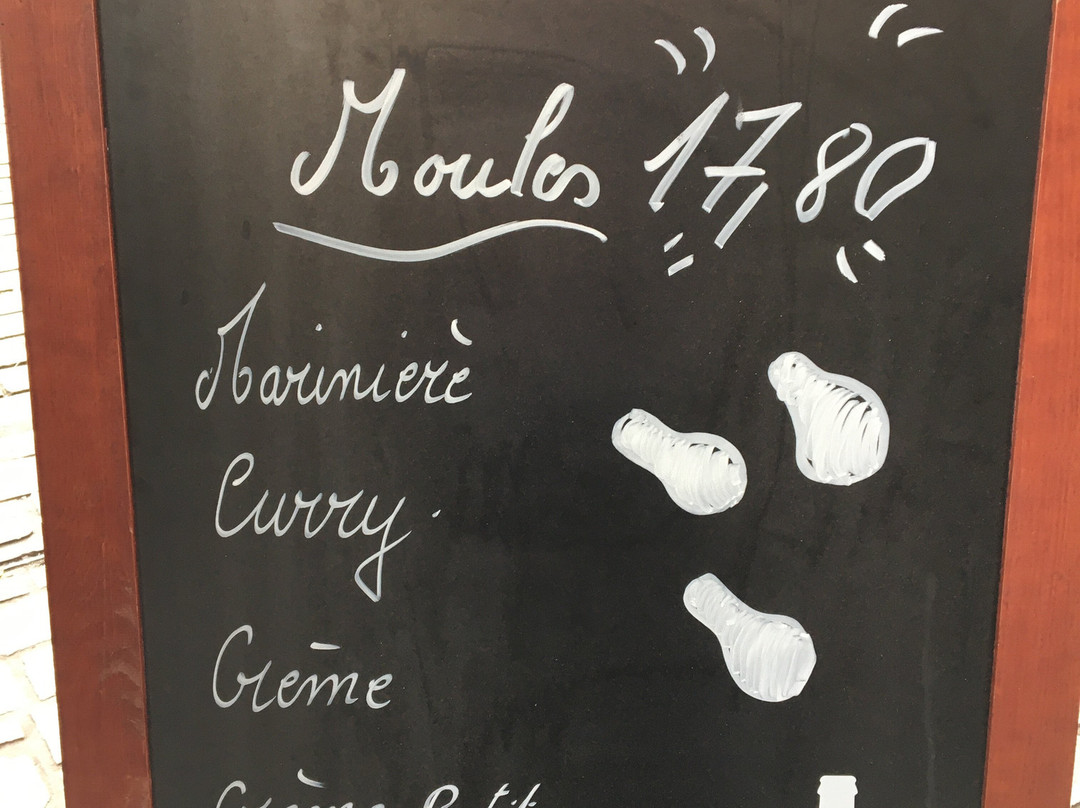 Moules 17,80
Marinière
Curry
Crème
Crème